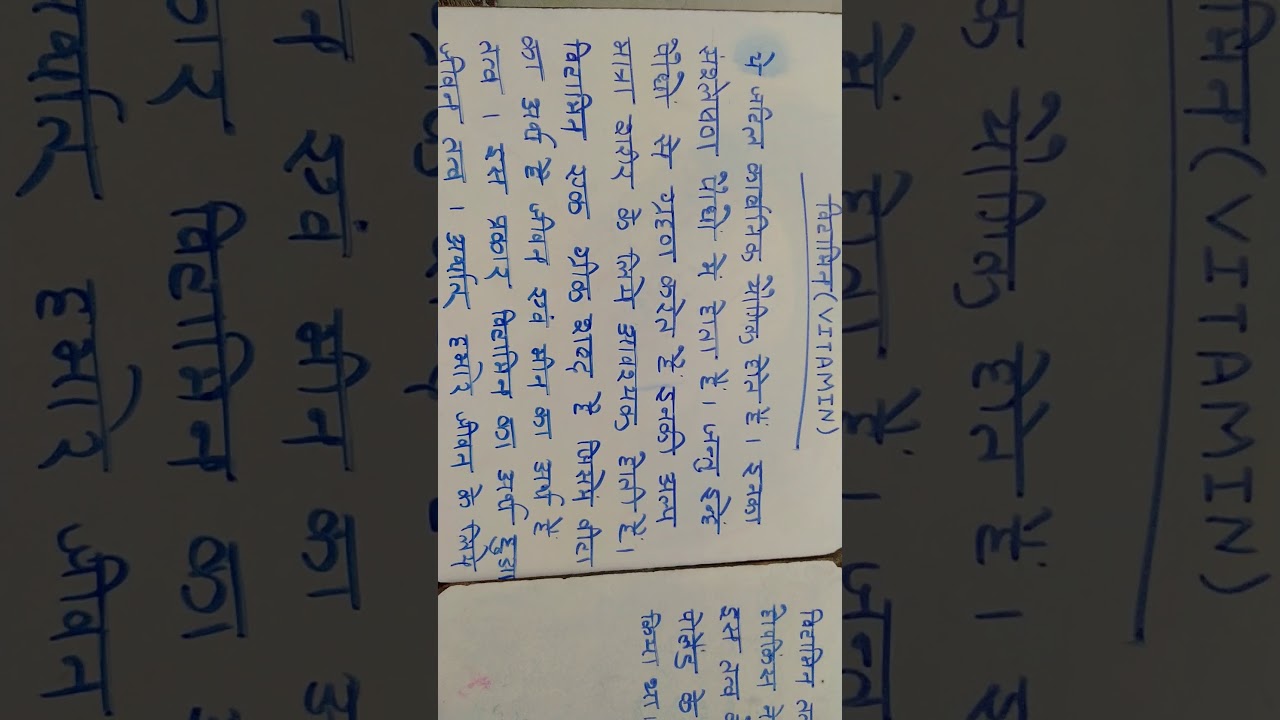 विटामिन (VITAMIN)
ये जटिल कार्बनिक यौगिक होते हैं। इनका
संश्लेषण पौधों में होता है। जन्तु इन्हें
पौधों से ग्रहण करते हैं इनकी अल्प
मात्रा शरीर के लिये आवश्यक होती हैं।
विटामिन एक ग्रीक शब्द है जिसमें वीटा
का अर्थ है जीवन एवं मीन का अर्थ हैं
तत्व । इस प्रकार विटामिन का अर्थ हुआ
जीवन तत्व । अर्थात् हमारे जीवन के लिये
विटामिन
होपकिंस ने
इस तत्व
पोलैंड के
किया था।